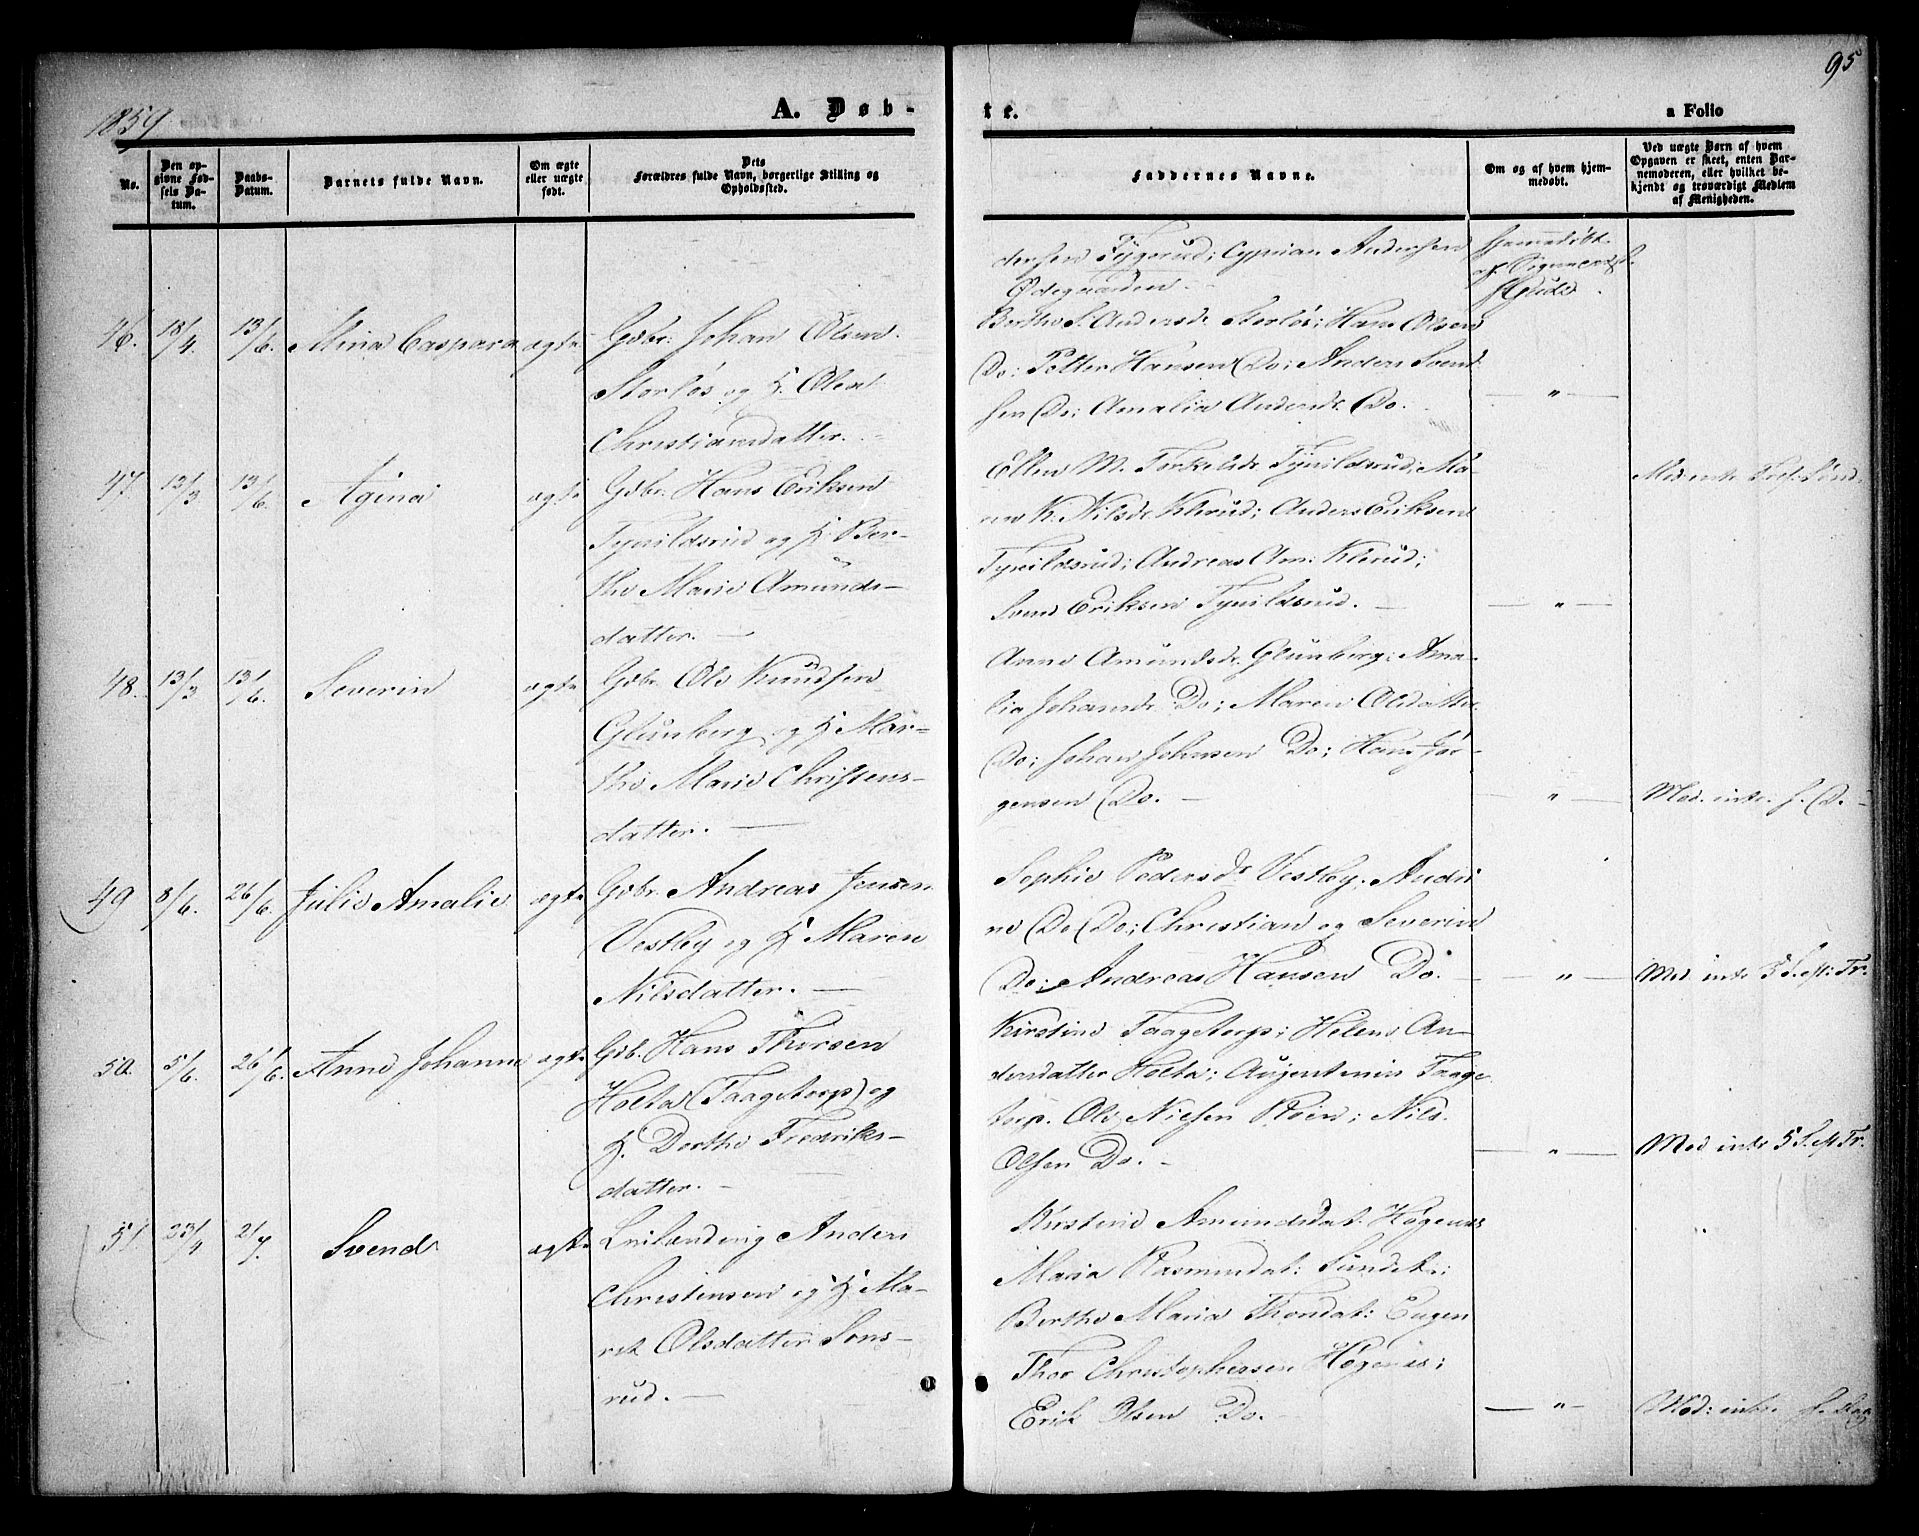 95
1859
A. Døb-
te.
a Folio
No.
Den op-
givne Fød-
sels Da-
tum.
Daabs-
Datum.
Barnets fulde Navn.
Om ægte
eller uægte
født.
Dets
Forældres fulde Navn, borgerlige Stilling og
Opholdssted.
Faddernes Navne.
Om og af hvem hjem-
medøbt.
Ved uægte Børn af hvem
Opgaven er skeet, enten Bar-
nemoderen, eller hvilket be-
kjendt og troværdigt Medlem
af Menigheden.
dersen Tygerud; Cyprian Andersen
Ødegaarden.
Hjemmedøbt
af
Gude.
46. 18/4. 13/6. Mina Caspara ægte
Gdbr. Johan Olsen
Storløs og H. Olea
Christiansdatter.
Berthe S. Andersdr Storløs; Hans Olsen
Do; Petter Hansen Do; Anders Svend-
sen Do; Amalia Andersdr Do.
— " —
47. 12/3 13/6. Agina ægte
Gdbr. Hans Eriksen
Tyrildsrud og H. Ber-
the Marie Amunds-
datter. —
Ellen M. Torkelsdr Tyrildsrud; Ma-
ren K. Nilsdr Klerud; Anders Eriksen
Tyrildsrud; Andreas Am. Klerud;
Svend Eriksen Tyrildsrud. —
— " —
48. 13/3 13/6. Severin ægte
Gdbr. Ole Knudsen
Glunberg og H. Mar-
the Marie Christens-
datter. —
Anne Amundsdr. Glunberg; Ama-
lia Johansdr Do; Maren Olsdatter
Do; Johan Johnsen Do; Hans Jør-
gensen Do. —
— " —
Mod. intr. s. D.
49 8/6. 26/6. Julie Amalie. ægte
Gdbr. Andreas Jensen
Vestby og H. Maren
Nilsdatter. —
Sophie Pedersdr Vestby. Andri
ne Do Do; Christian og Severin
Do; Andreas Hansen Do. —
— " —
Mod intr 5 S. e/. Tr.
50. 5/6. 26/6. Anne Johanne ægte
Gdb. Hans Thorsen
Holta (Taagetorp) og
H. Dorthe Fredriks-
datter. —
Kirstine Taagetorp; Helene An-
dersdatter Holta; Augentinus Taage
torp. Ole Nielsen Røen; Nils
Olsen Do. —
— " —
Mod intr 5 S. e/ Tr.
51. 23/4 2/7. Svend ægte
Anders
Christensen og H. Ma-
ret Olsdatter Sons-
rud. —
Kirstine Amundsdat: Høgenes
Maria Rasmusdat:
Berthe Maria Thorsdat: Eugen
Thor Christophersen Høgenes;
Erik Olsen Do. —
— " —
Mod: intr.